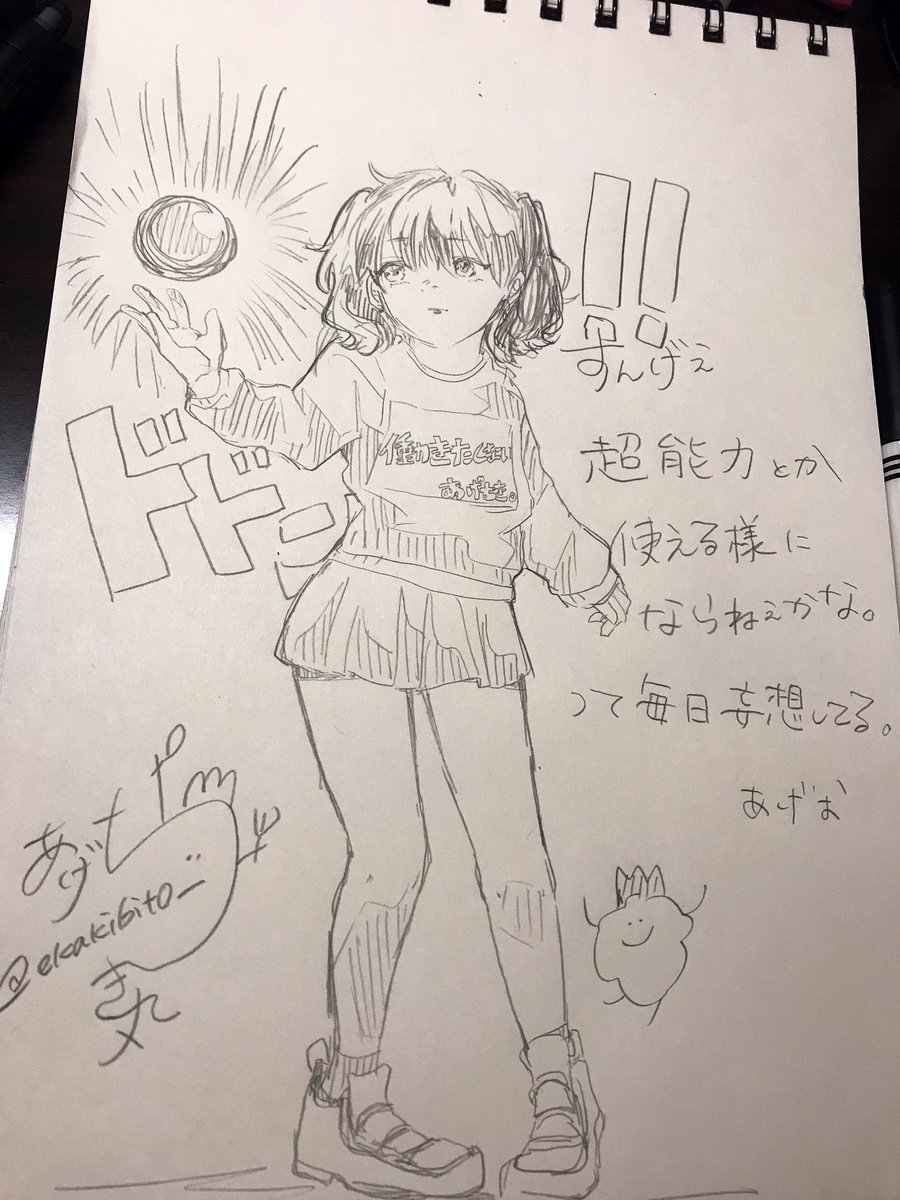 !!
すんげぇ
超能力とか
使える様に
ならねぇかな。
って毎日妄想してる。
あげお
働きたくない
ドドン
あげち
@ekakibito_